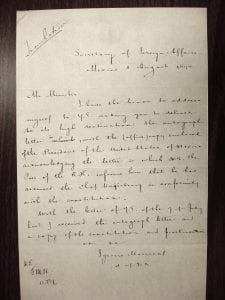 Translation
Secretary of Foreign Affairs
Mexico 8 August 18
Mr Minister
I have the honor to address
myself to Y.E. asking you to deliver
to its high destination the autograph
letter enclosed with the (office) copy enclosed
of the President of the United States of Mexico
acknowledging the letter in which H.E. the
of the R.H. informs him that he has
assumed the Chief Magistracy in conformity
with the constitution.
With the letter of Y.E. of the 4 of July
last I received the autograph letter and
a copy of the constitution and proclamation
Ignacio Mariscal
H.E.